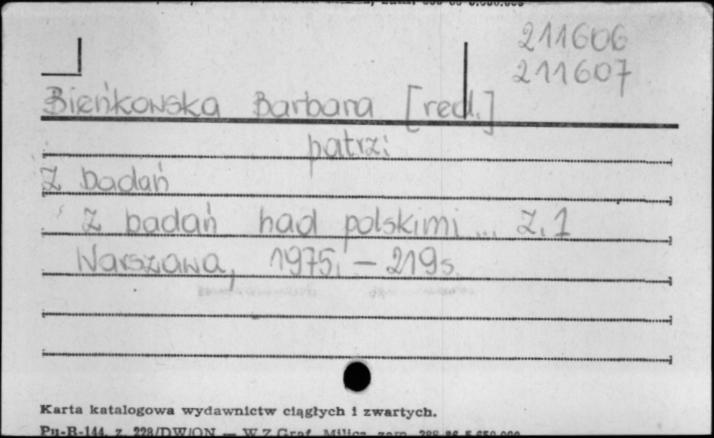 211606
211607
Bieńkowska Barbara [red.]
patrzi
Z badań
Z badań nad polskimi ... Z. 1
Warszawa, 1975. - 219 s.
Karta katalogowa wydawnictw ciągłych i zwartych.
Pu-R-144, z. 228/DW/ON — WZGraf. Milicz, zam.